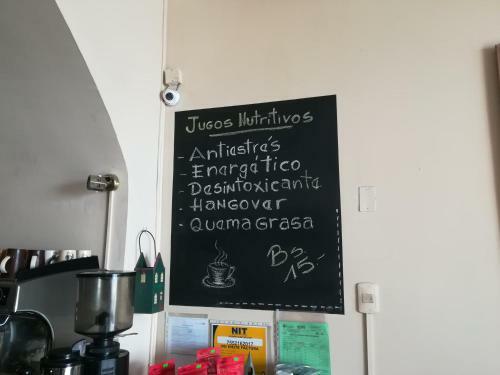 Jugos Nutritivos
- Antiestrés
- Energético
- Desintoxicante
- Hangover
- Quema Grasa
Bs
15-
NIT